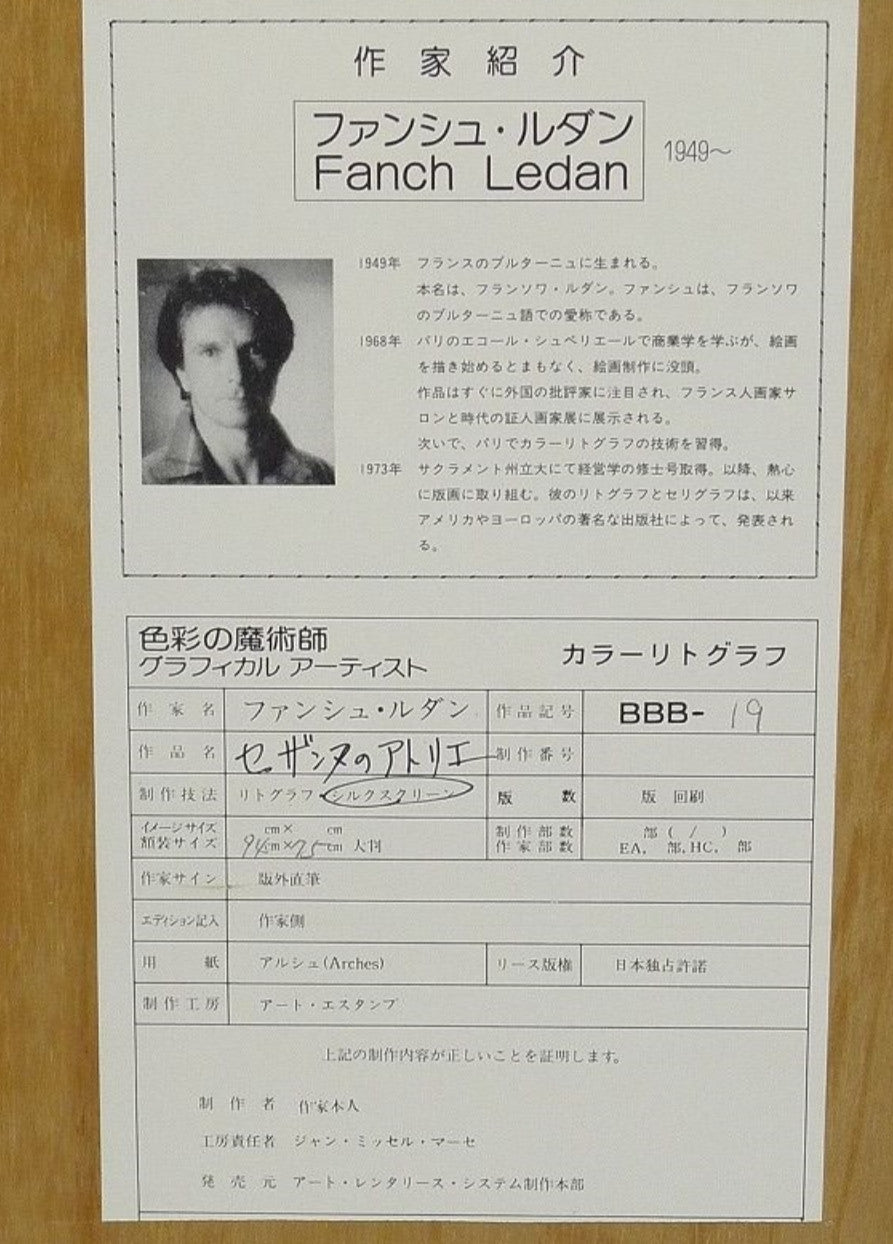 作家紹介
ファンシュ・ルダン
Fanch Ledan
1949〜
1949年 フランスのブルターニュに生まれる。
本名は、フランソワ・ルダン。ファンシュは、フランソワ
のブルターニュ語での愛称である。
1968年 パリのエコール・シュペリエールで商業学を学ぶが、絵画
を描き始めるとまもなく、絵画制作に没頭。
作品はすぐに外国の批評家に注目され、フランス人画家サ
ロンと時代の証人画家展に展示される。
次いで、パリでカラーリトグラフの技術を習得。
1973年 サクラメント州立大にて経営学の修士号取得。以降、熱心
に版画に取り組む。彼のリトグラフとセリグラフは、以来
アメリカやヨーロッパの著名な出版社によって、発表され
る。
色彩の魔術師
グラフィカル アーティスト
カラーリトグラフ
作家名 ファンシュ・ルダン 作品記号 BBB-19
作品名 セザンヌのアトリエ 制作番号
制作技法 リトグラフ・シルクスクリーン 版数 版 回刷
イメージサイズ cm× cm 制作部数 部 ( / )
額装サイズ 94cm×75cm 大判 作家部数 EA. 部,HC. 部
作家サイン 版外直筆
エディション記入 作家側
用紙 アルシュ(Arches) リース版権 日本独占許諾
制作工房 アート・エスタンプ
上記の制作内容が正しいことを証明します。
制作者 作家本人
工房責任者 ジャン・ミッセル・マーセ
発売元 アート・レンタリース・システム制作本部